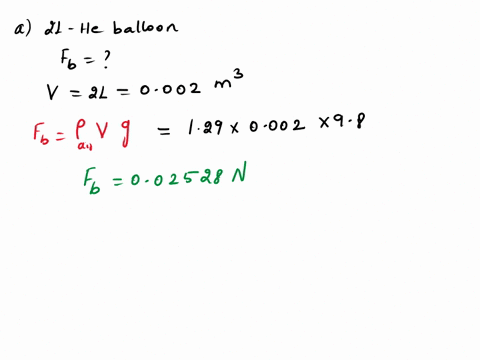 a) 2L - He balloon
F_b = ?
V = 2L = 0.002 m³
F_b = ρ_air V g = 1.29 × 0.002 × 9.8
F_b = 0.02528 N